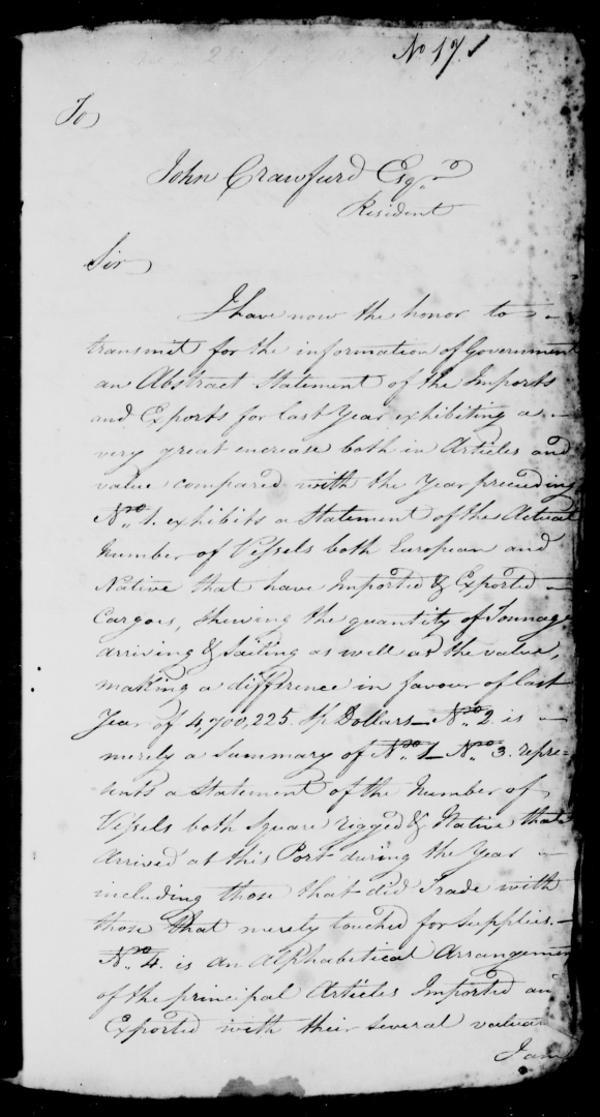 No 171
To
John Crawfurd Esqr
Resident
Sir
I have now the honor to
transmit for the information of Government
an Abstract Statement of the Imports
and Exports for last Year exhibiting a
very great encrease both in Articles and
value compared with the Year preceeding
No. 1. exhibits a Statement of the Actual
Number of Vessels both European and
Native that have Imported & Exported
Cargoes, shewing the quantity of Tonnage
arriving & Sailing as well as the value,
making a difference in favour of last
Year of 4,700,225. Sp Dollars No. 2. is
merely a Summary of No. 1 No. 3. repre-
sents a Statement of the Number of
Vessels both Square rigged & Native that
Arrived at this Port during the Year
including those that did Trade with
those that merely touched for supplies.
No. 4. is an Alphabetical Arrangemen
of the principal Articles Imported an
Exported with their several valua
I am